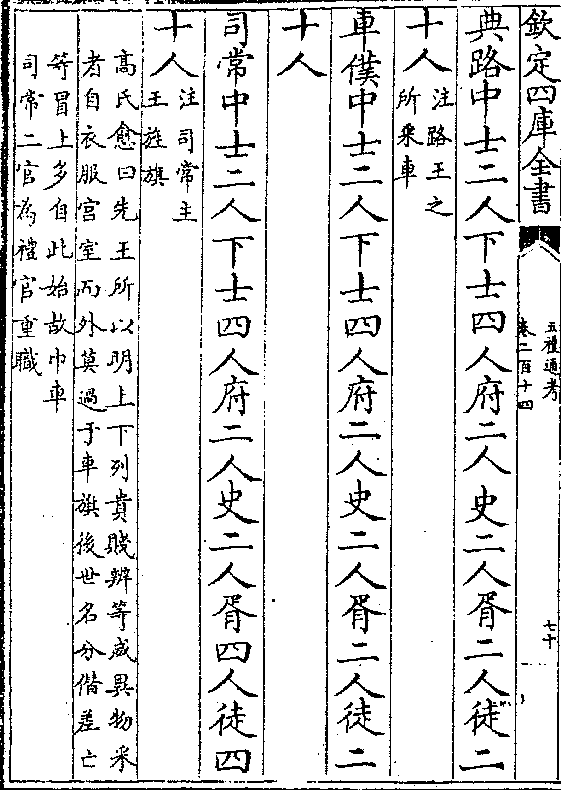 欽定四庫全書
五禮通考
卷二百十四
七十
典路中士二人下士四人府二人史二人胥二人徒二
十人
注路王之
所乘車
車僕中士二人下士四人府二人史二人胥二人徒二
十人
司常中士二人下士四人府二人史二人胥四人徒四
十人
注司常主
王旌旗
高氏愈曰先王所以明上下列貴賤辨等威異物采
者自衣服宮室而外莫過于車旗後世名分僭差亡
等冒上多自此始故巾車
司常二官為禮官重職